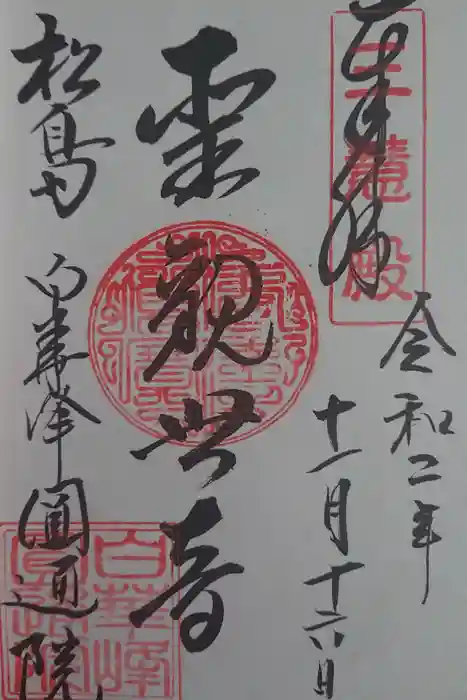 奉拝
三慧殿
令和二年
十一月十六日
聖觀世音
松島 白華峰 圓通院
白華峰